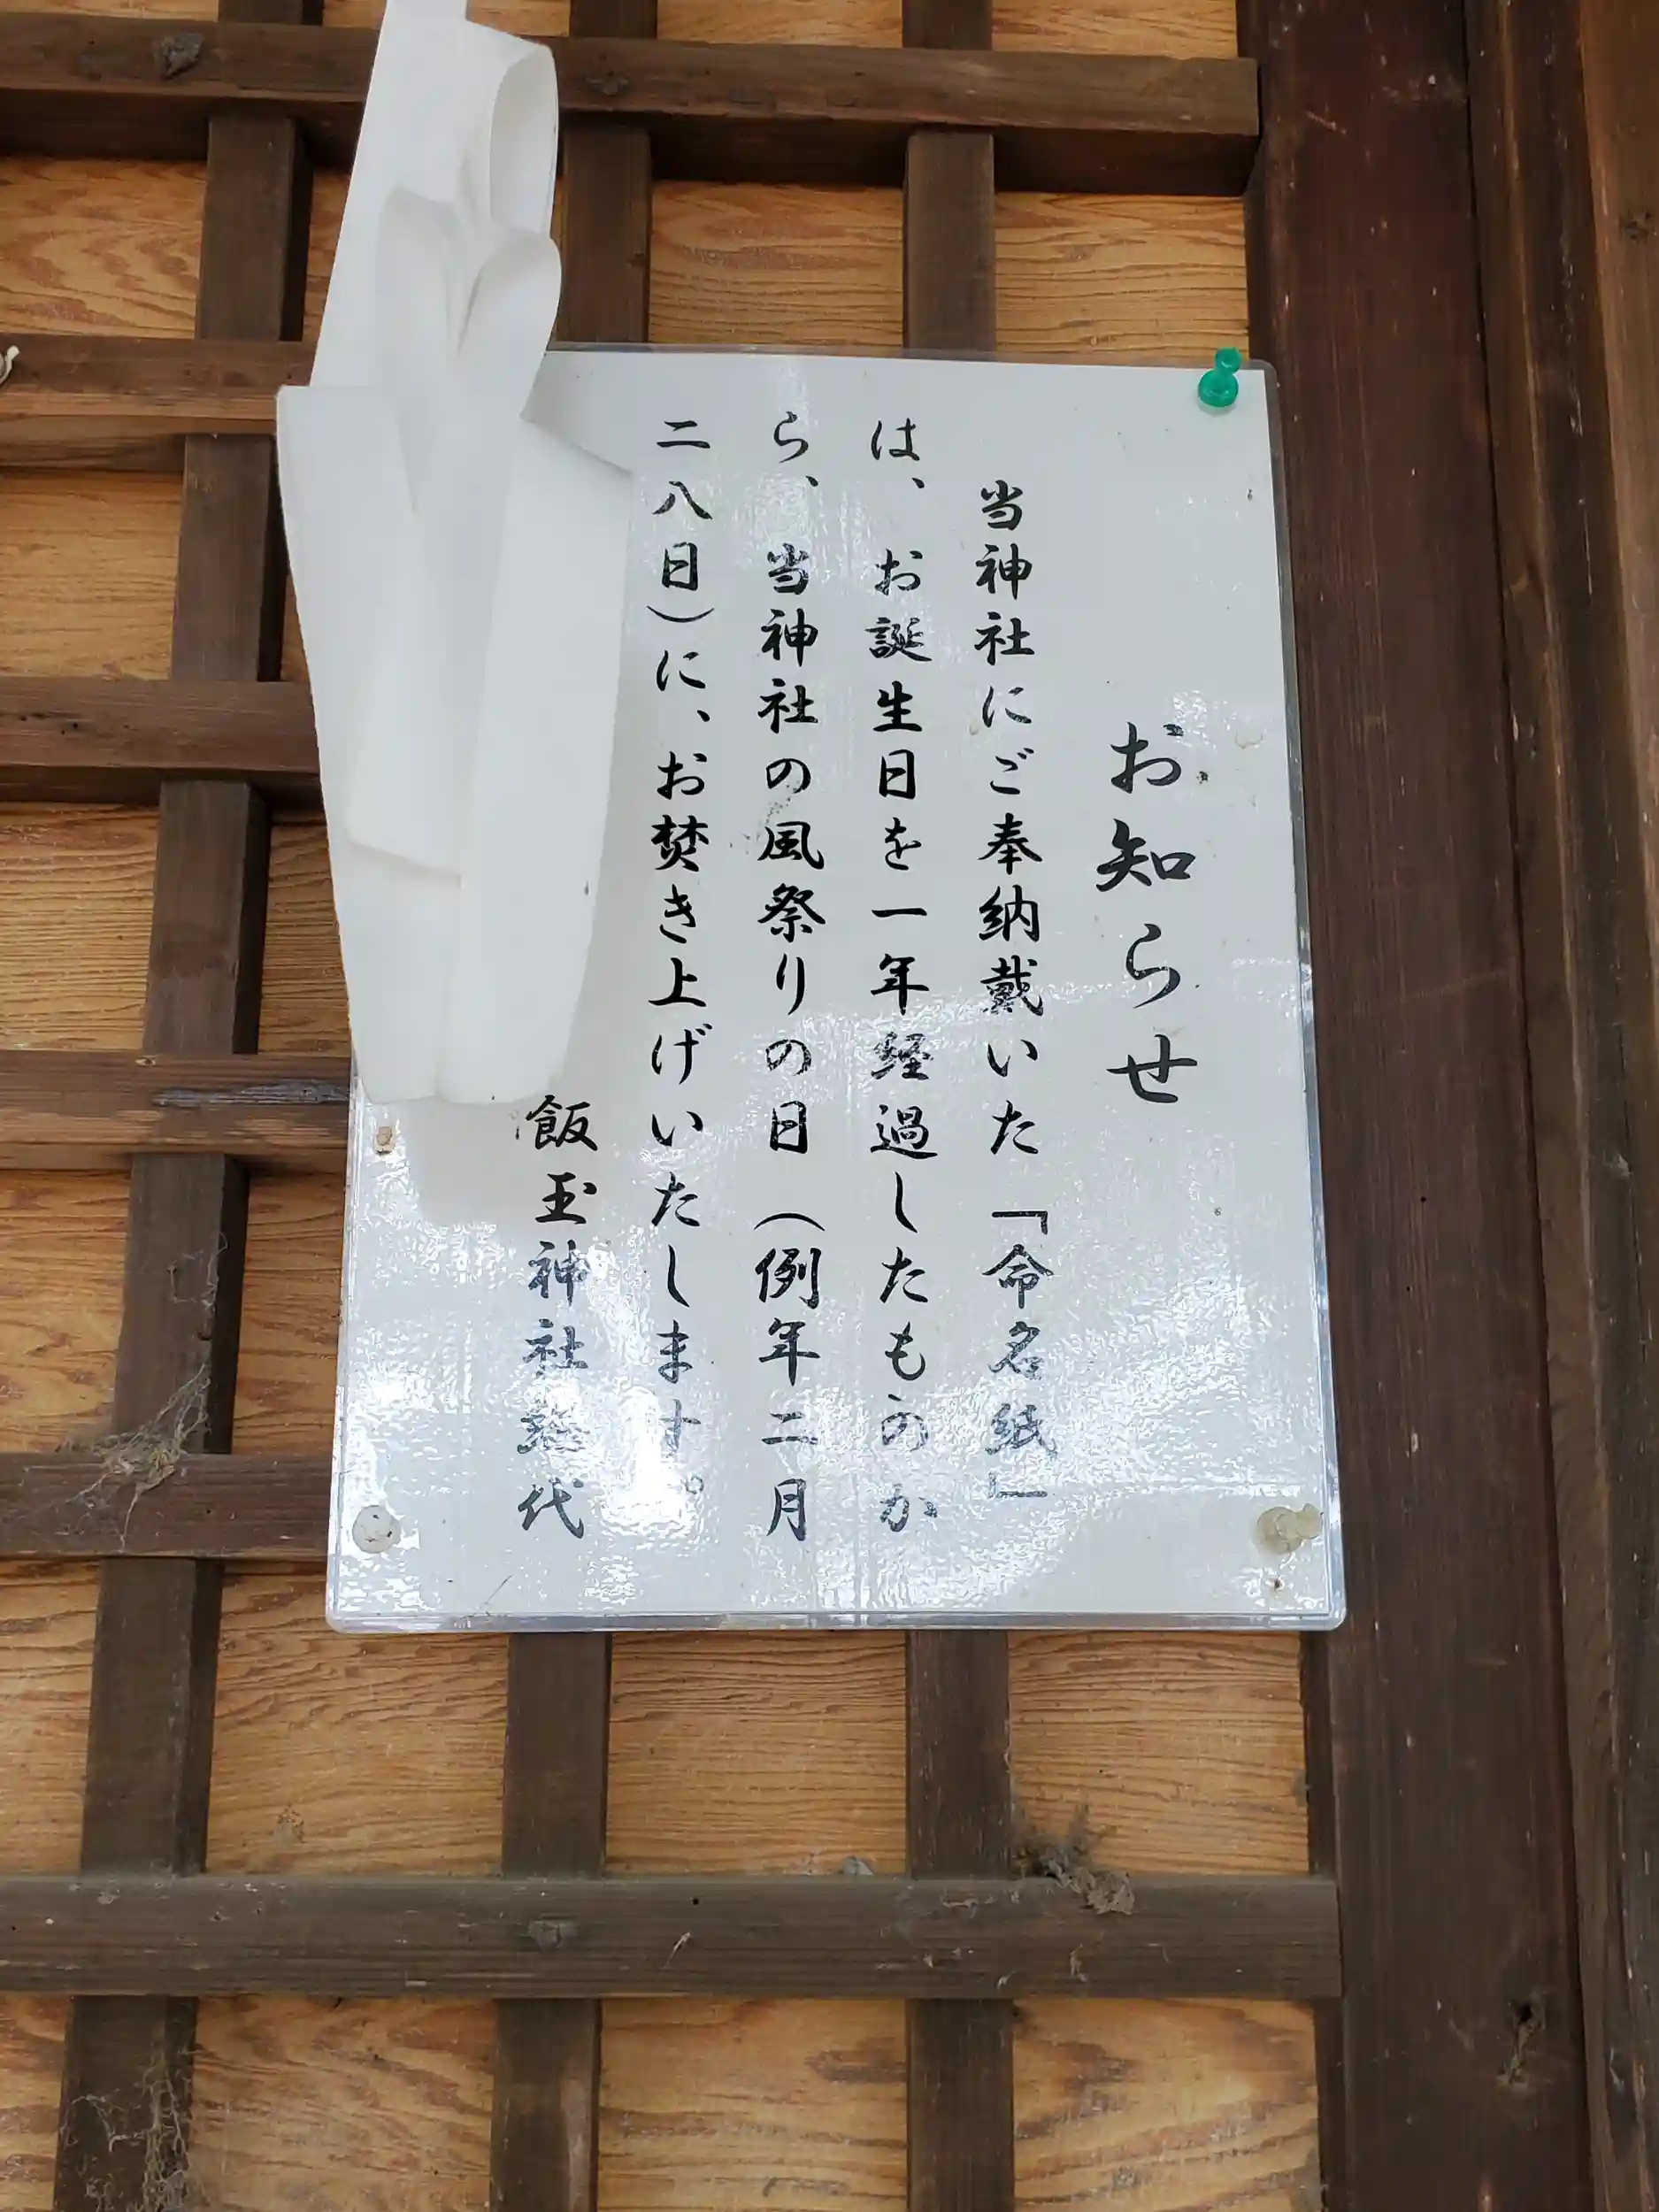 お知らせ
当神社にご奉納戴いた「命名紙」
は、お誕生日を一年経過したものか
ら、当神社の風祭りの日（例年二月
二八日）に、お焚き上げいたします。
飯玉神社総代